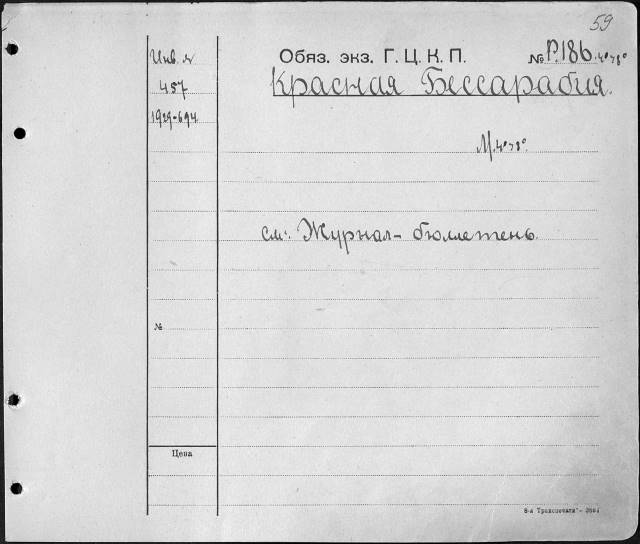 59
Инв. №
457
1929-694
Обяз. экз. Г. Ц. К. П. № Р.186. 4°>8°
Красная Бессарабия.
М. 4°>8°.
см. Журнал-бюллетень.
№
Цена
8-я Транспечати